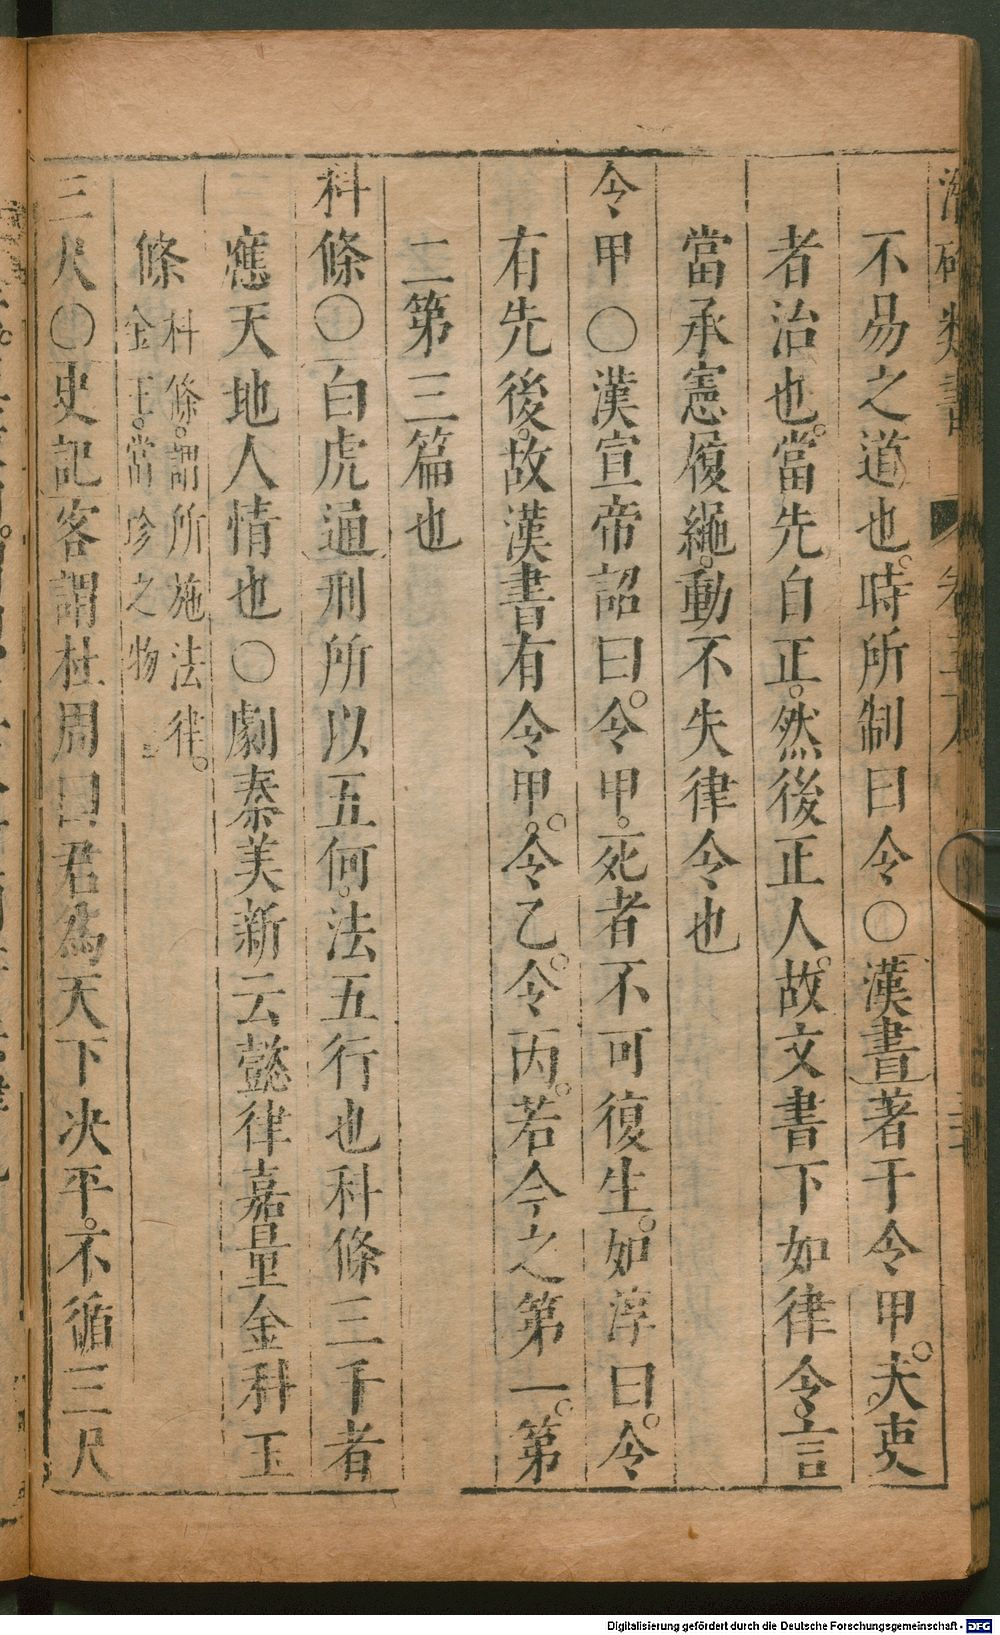 不易之道也。時所制曰令〇漢書著于令甲。夫吏
者治也。當先自正。然後正人。故文書下如律令。言
當承憲履繩。動不失律令也
令甲〇漢宣帝詔曰。令甲。死者不可復生。如淳曰。令
有先後。故漢書有令甲。令乙。令丙。若今之第一。第
二第三篇也
科條〇白虎通刑所以五何。法五行也科條三千者
應天地人情也〇劇秦美新云懿律嘉量金科玉
條科條。謂所施法律。
金玉。當珍之物
三尺〇史記客謂杜周曰君為天下决平。不循三尺
Digitalisierung gefördert durch die Deutsche Forschungsgemeinschaft - DFG